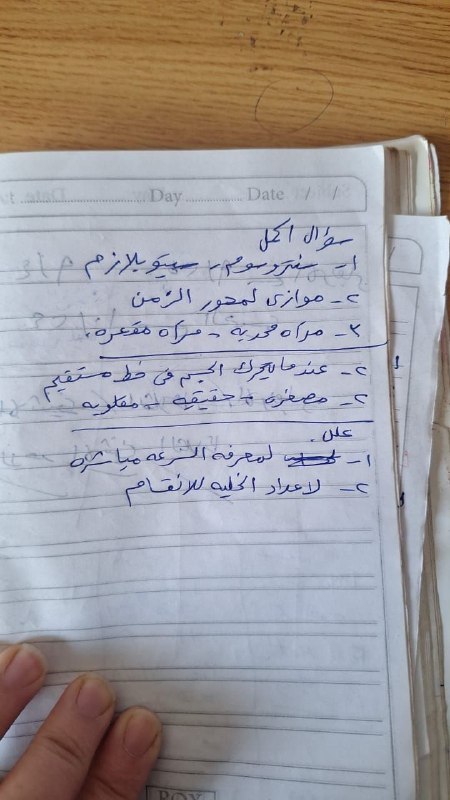 Day ............ Date / /
سؤال اكمل
١- سنتروسوم - سيتوبلازم
٢- موازى لمحور الزمن
٣- مرآه محدبة - مرآه مقعرة
٢- عندما يتحرك الجسم فى خط مستقيم
٢- مصغره - حقيقيه - مقلوبه
علل
١- لمعرفه السرعه مباشره
٢- لاعداد الخليه للانقسام
ROX